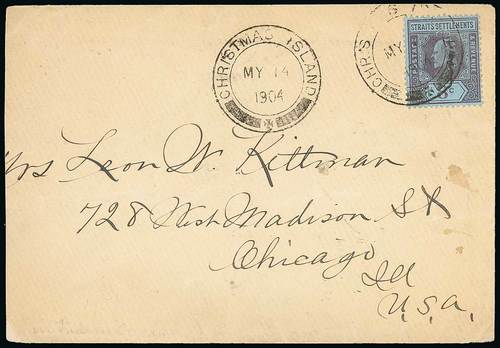 CHRISTMAS ISLAND
MY 14
1904
CHRIS
MY
STRAITS SETTLEMENTS
POSTAGE
& REVENUE
C
Mrs Leon W. Kittman
728 West Madison St
Chicago
Ill
U.S.A.